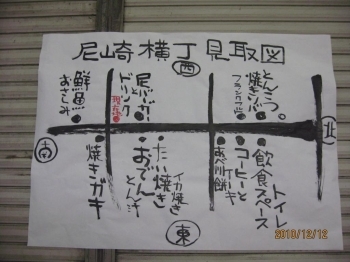 尼崎横丁見取図
西
鮮魚
おさしみ
尼バーガー
と
ドリンク
現在地
とんこつ
焼きそば
フランクフルト
南
北
焼きガキ
おでん
とん汁
たい焼き
イカ焼き
あべ川餅
コーヒーと
ケーキ
飲食スペース
トイレ
東
2010/12/12